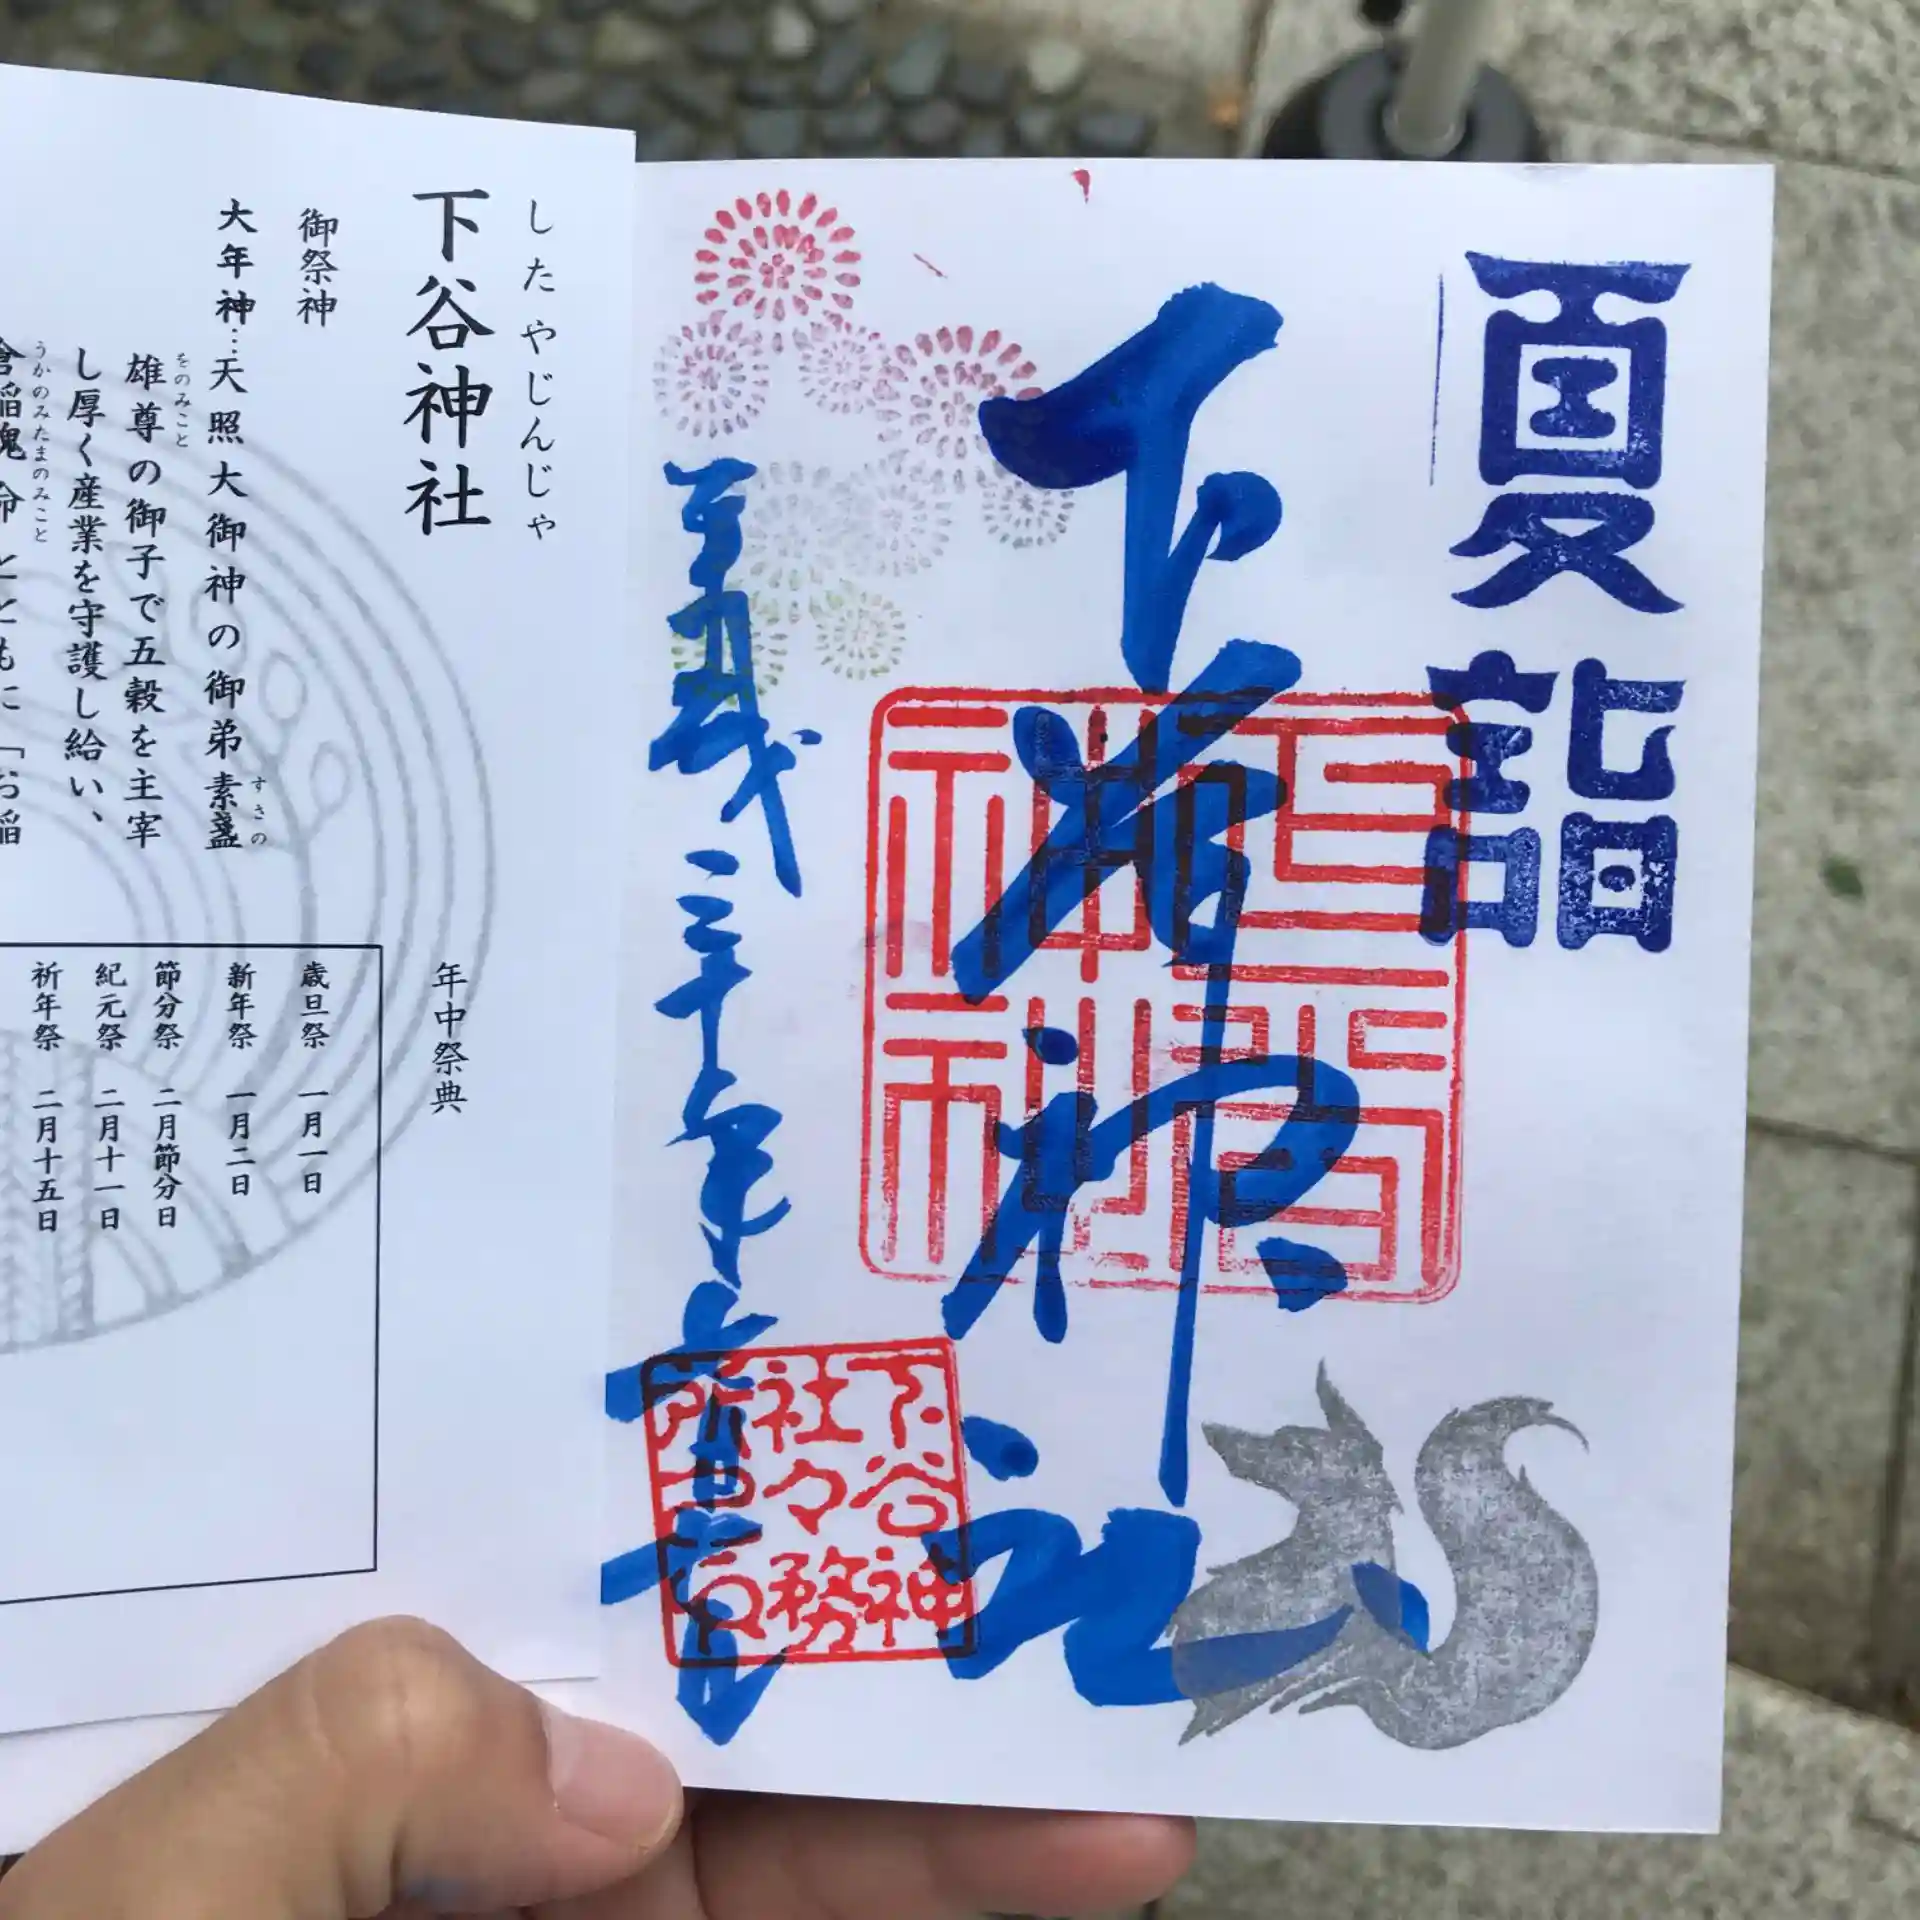 夏詣
下谷神社
平成三十年
下谷神
社々務
所之印
したやじんじゃ
下谷神社
御祭神
大年神…天照大御神の御弟素盞
すさの
雄尊の御子で五穀を主宰
をのみこと
し厚く産業を守護し給い、
倉稲魂命とともに「お稲
うかのみたまのみこと
年中祭典
歳旦祭 一月一日
新年祭 一月二日
節分祭 二月節分日
紀元祭 二月十一日
祈年祭 二月十五日